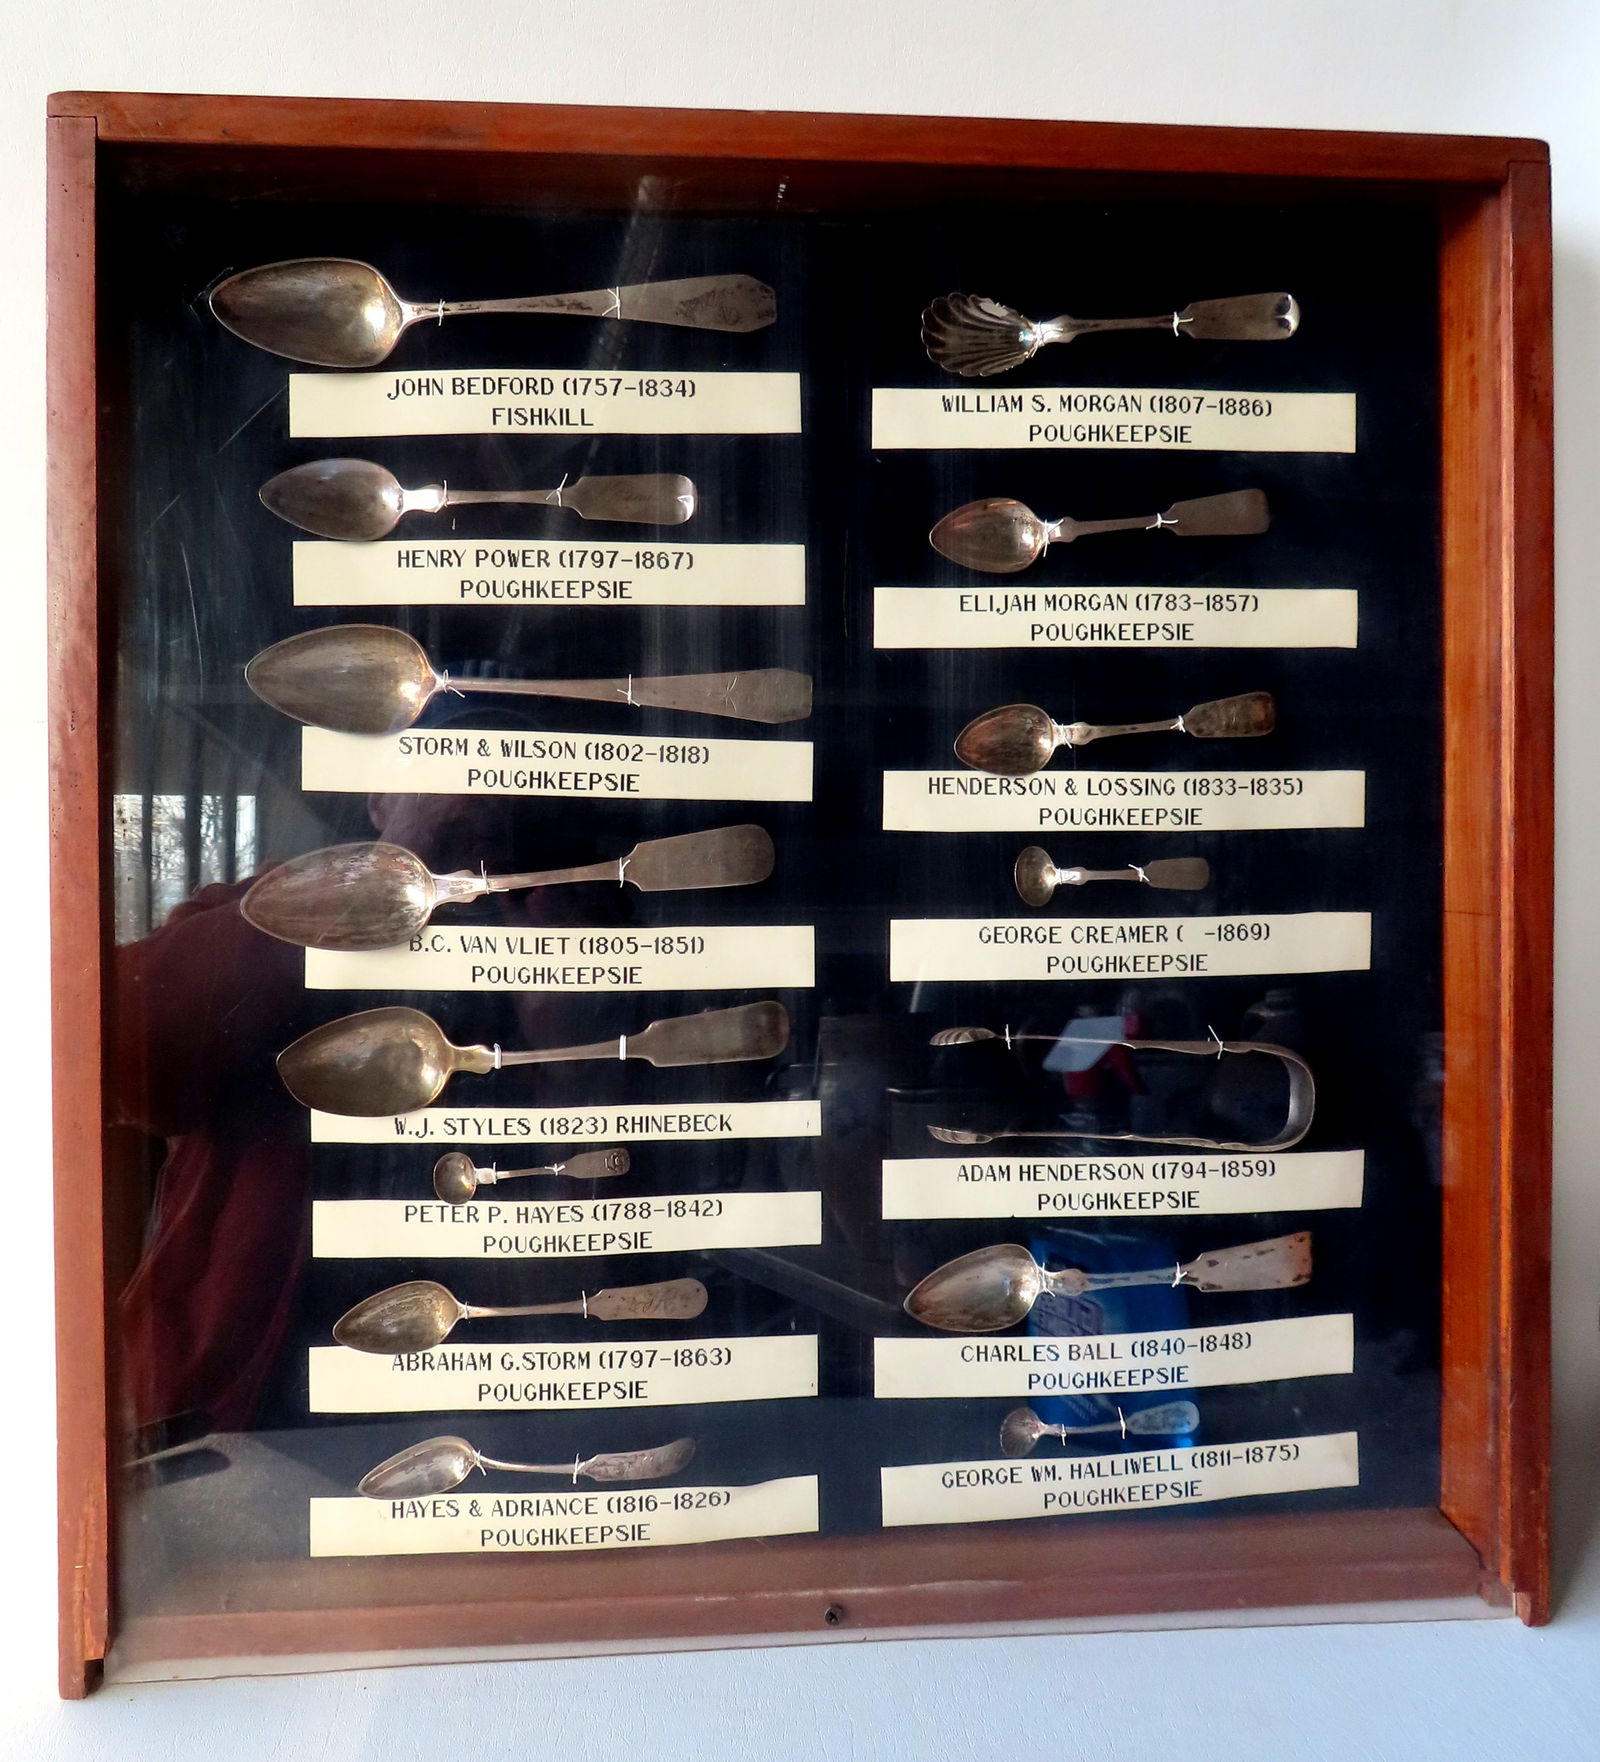 JOHN BEDFORD (1757-1834)
FISHKILL
HENRY POWER (1797-1867)
POUGHKEEPSIE
STORM & WILSON (1802-1818)
POUGHKEEPSIE
B.C. VAN VLIET (1805-1851)
POUGHKEEPSIE
W.J. STYLES (1823) RHINEBECK
PETER P. HAYES (1788-1842)
POUGHKEEPSIE
ABRAHAM G.STORM (1797-1863)
POUGHKEEPSIE
HAYES & ADRIANCE (1816-1826)
POUGHKEEPSIE
WILLIAM S. MORGAN (1807-1886)
POUGHKEEPSIE
ELIJAH MORGAN (1783-1857)
POUGHKEEPSIE
HENDERSON & LOSSING (1833-1835)
POUGHKEEPSIE
GEORGE CREAMER ( -1869)
POUGHKEEPSIE
ADAM HENDERSON (1794-1859)
POUGHKEEPSIE
CHARLES BALL (1840-1848)
POUGHKEEPSIE
GEORGE WM. HALLIWELL (1811-1875)
POUGHKEEPSIE